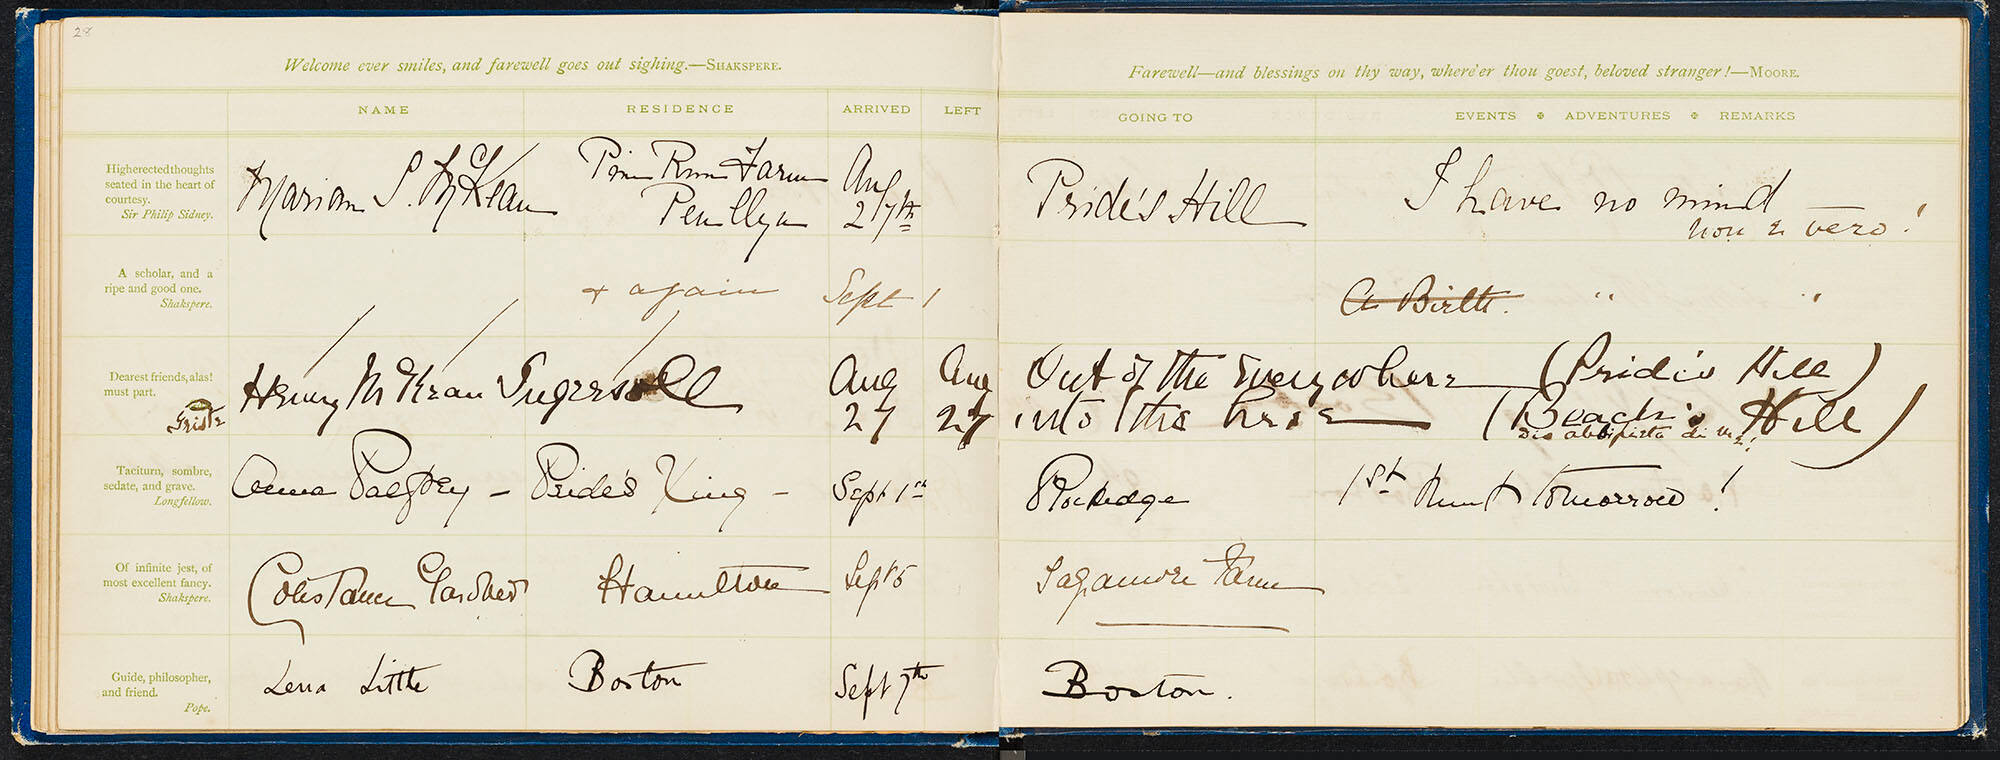 28
Welcome ever smiles, and farewell goes out sighing.—SHAKSPERE.
NAME RESIDENCE ARRIVED LEFT
Higherectedthoughts
seated in the heart of
courtesy.
Sir Philip Sidney.
Marian S. McKean
Pine Run Farm
Penllyn
Aug
27th
A scholar, and a
ripe and good one.
Shakspere.
& again Sept 1
Dearest friends, alas!
must part.
Henry McKean Ingersoll
Aug Aug
27 27
Taciturn, sombre,
sedate, and grave.
Longfellow.
Anna Palfrey – Pride's Xing – Sept 1st
Of infinite jest, of
most excellent fancy.
Shakspere.
Constance Gardner Hamilton Sept 5
Guide, philosopher,
and friend.
Pope.
Lena Little Boston Sept 7th
Farewell—and blessings on thy way, where'er thou goest, beloved stranger!—MOORE.
GOING TO EVENTS ✠ ADVENTURES ✠ REMARKS
Pride's Hill I have no mind
non è vero!
A Birth. " "
Out of the everywhere (Pride's Hill)
into the here (Beach's Hill)
1st hunt tomorrow!
Sagamore Farm
Boston.